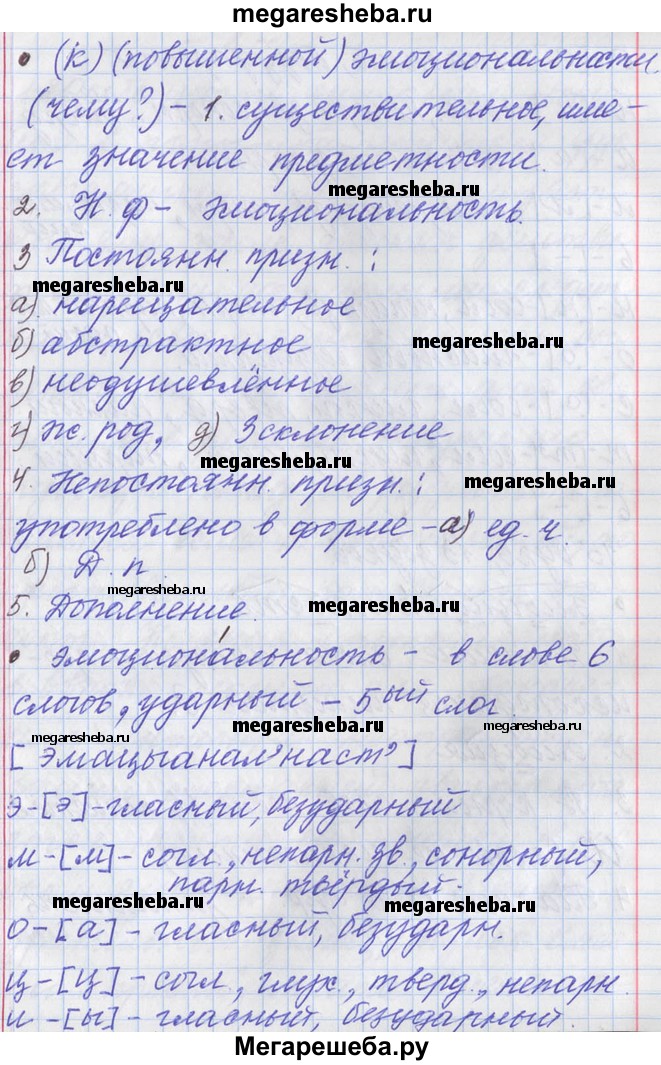 megaresheba.ru
• (к) (повышенной) эмоциональности.
(чему?) – 1. существительное, име-
ет значение предметности.
megaresheba.ru
2. Н. ф – эмоциональность.
3 Постоянн. призн. :
megaresheba.ru
а) нарицательное
megaresheba.ru
б) абстрактное
в) неодушевлённое
г) ж. род, д) 3 склонение
megaresheba.ru
4. Непостоянн. призн. :
megaresheba.ru
употреблено в форме – а) ед. ч.
б) Д. п.
megaresheba.ru
5. Дополнение.
megaresheba.ru
• эмоциона́льность – в слове 6
слогов, ударный – 5ый слог.
megaresheba.ru
megaresheba.ru
megaresheba.ru
[эмацыанал'наст']
э – [э] – гласный, безударный
м – [м] – согл., непарн. зв., сонорный,
парн. твёрдый.
megaresheba.ru
megaresheba.ru
о – [а] – гласный, безударн.
ц – [ц] – согл., глух., тверд., непарн.
и – [ы] – гласный, безударный.
Мегарешеба.ру